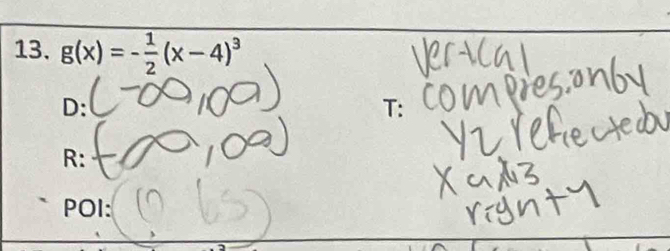 13. g(x) = -1/2 (x - 4)³
D: (-∞, ∞)
R: (-∞, ∞)
POI: (
T: vertical
compresion by
y2 reflected by
x axis
right 4